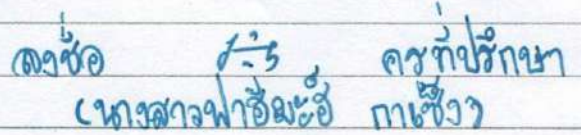 ลงชื่อ ครูที่ปรึกษา
(นางสาวฟาฮีมะฮ์ กาเซ็ง)